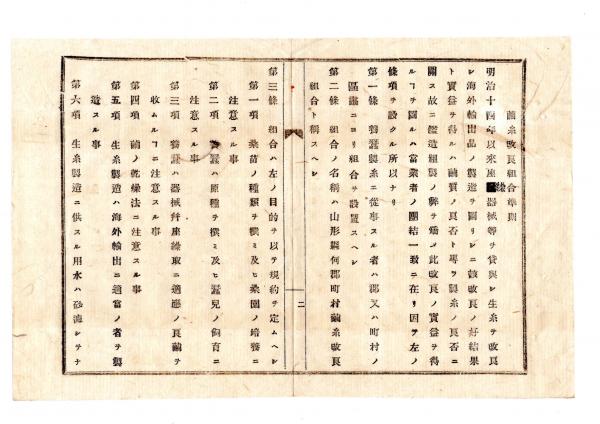 繭糸改良組合準則
明治十四年以来座繰器械等ヲ貸與シ生糸ヲ改良
シ海外輸出品ノ製造ヲ圖リシニ該改良ノ好結果
ト實益ヲ得ルハ繭質ノ良否ト専ラ製糸ノ良否ニ
關ス故ニ濫造粗製ノ弊ヲ矯メ此改良ノ實益ヲ得
ルコヲ圖ルハ當業者ノ團結一致ニ在リ因テ左ノ
條項ヲ設クル所以ナリ
第一條 養蚕製糸ニ從事スル者ハ郡又ハ町村ノ
區畫ニヨリ組合ヲ設置スヘシ
第二條 組合ノ名稱ハ山形縣何郡町村繭糸改良
組合ト稱スヘシ
二
第三條 組合ハ左ノ目的ヲ以テ規約ヲ定ムヘシ
第一項 桑苗ノ種類ヲ撰ミ及ヒ桑園ノ培養ニ
注意スル事
第二項 養蚕ハ原種ヲ撰ミ及ヒ蚕兒ノ飼育ニ
注意スル事
第三項 養蚕ハ器械幷座繰取ニ適應ノ良繭ヲ
收ムルコニ注意スル事
第四項 繭ノ乾燥法ニ注意スル事
第五項 生糸製造ハ海外輸出ニ適當ノ者ヲ製
造スル事
第六項 生糸製造ニ供スル用水ハ砂漉シヲナ